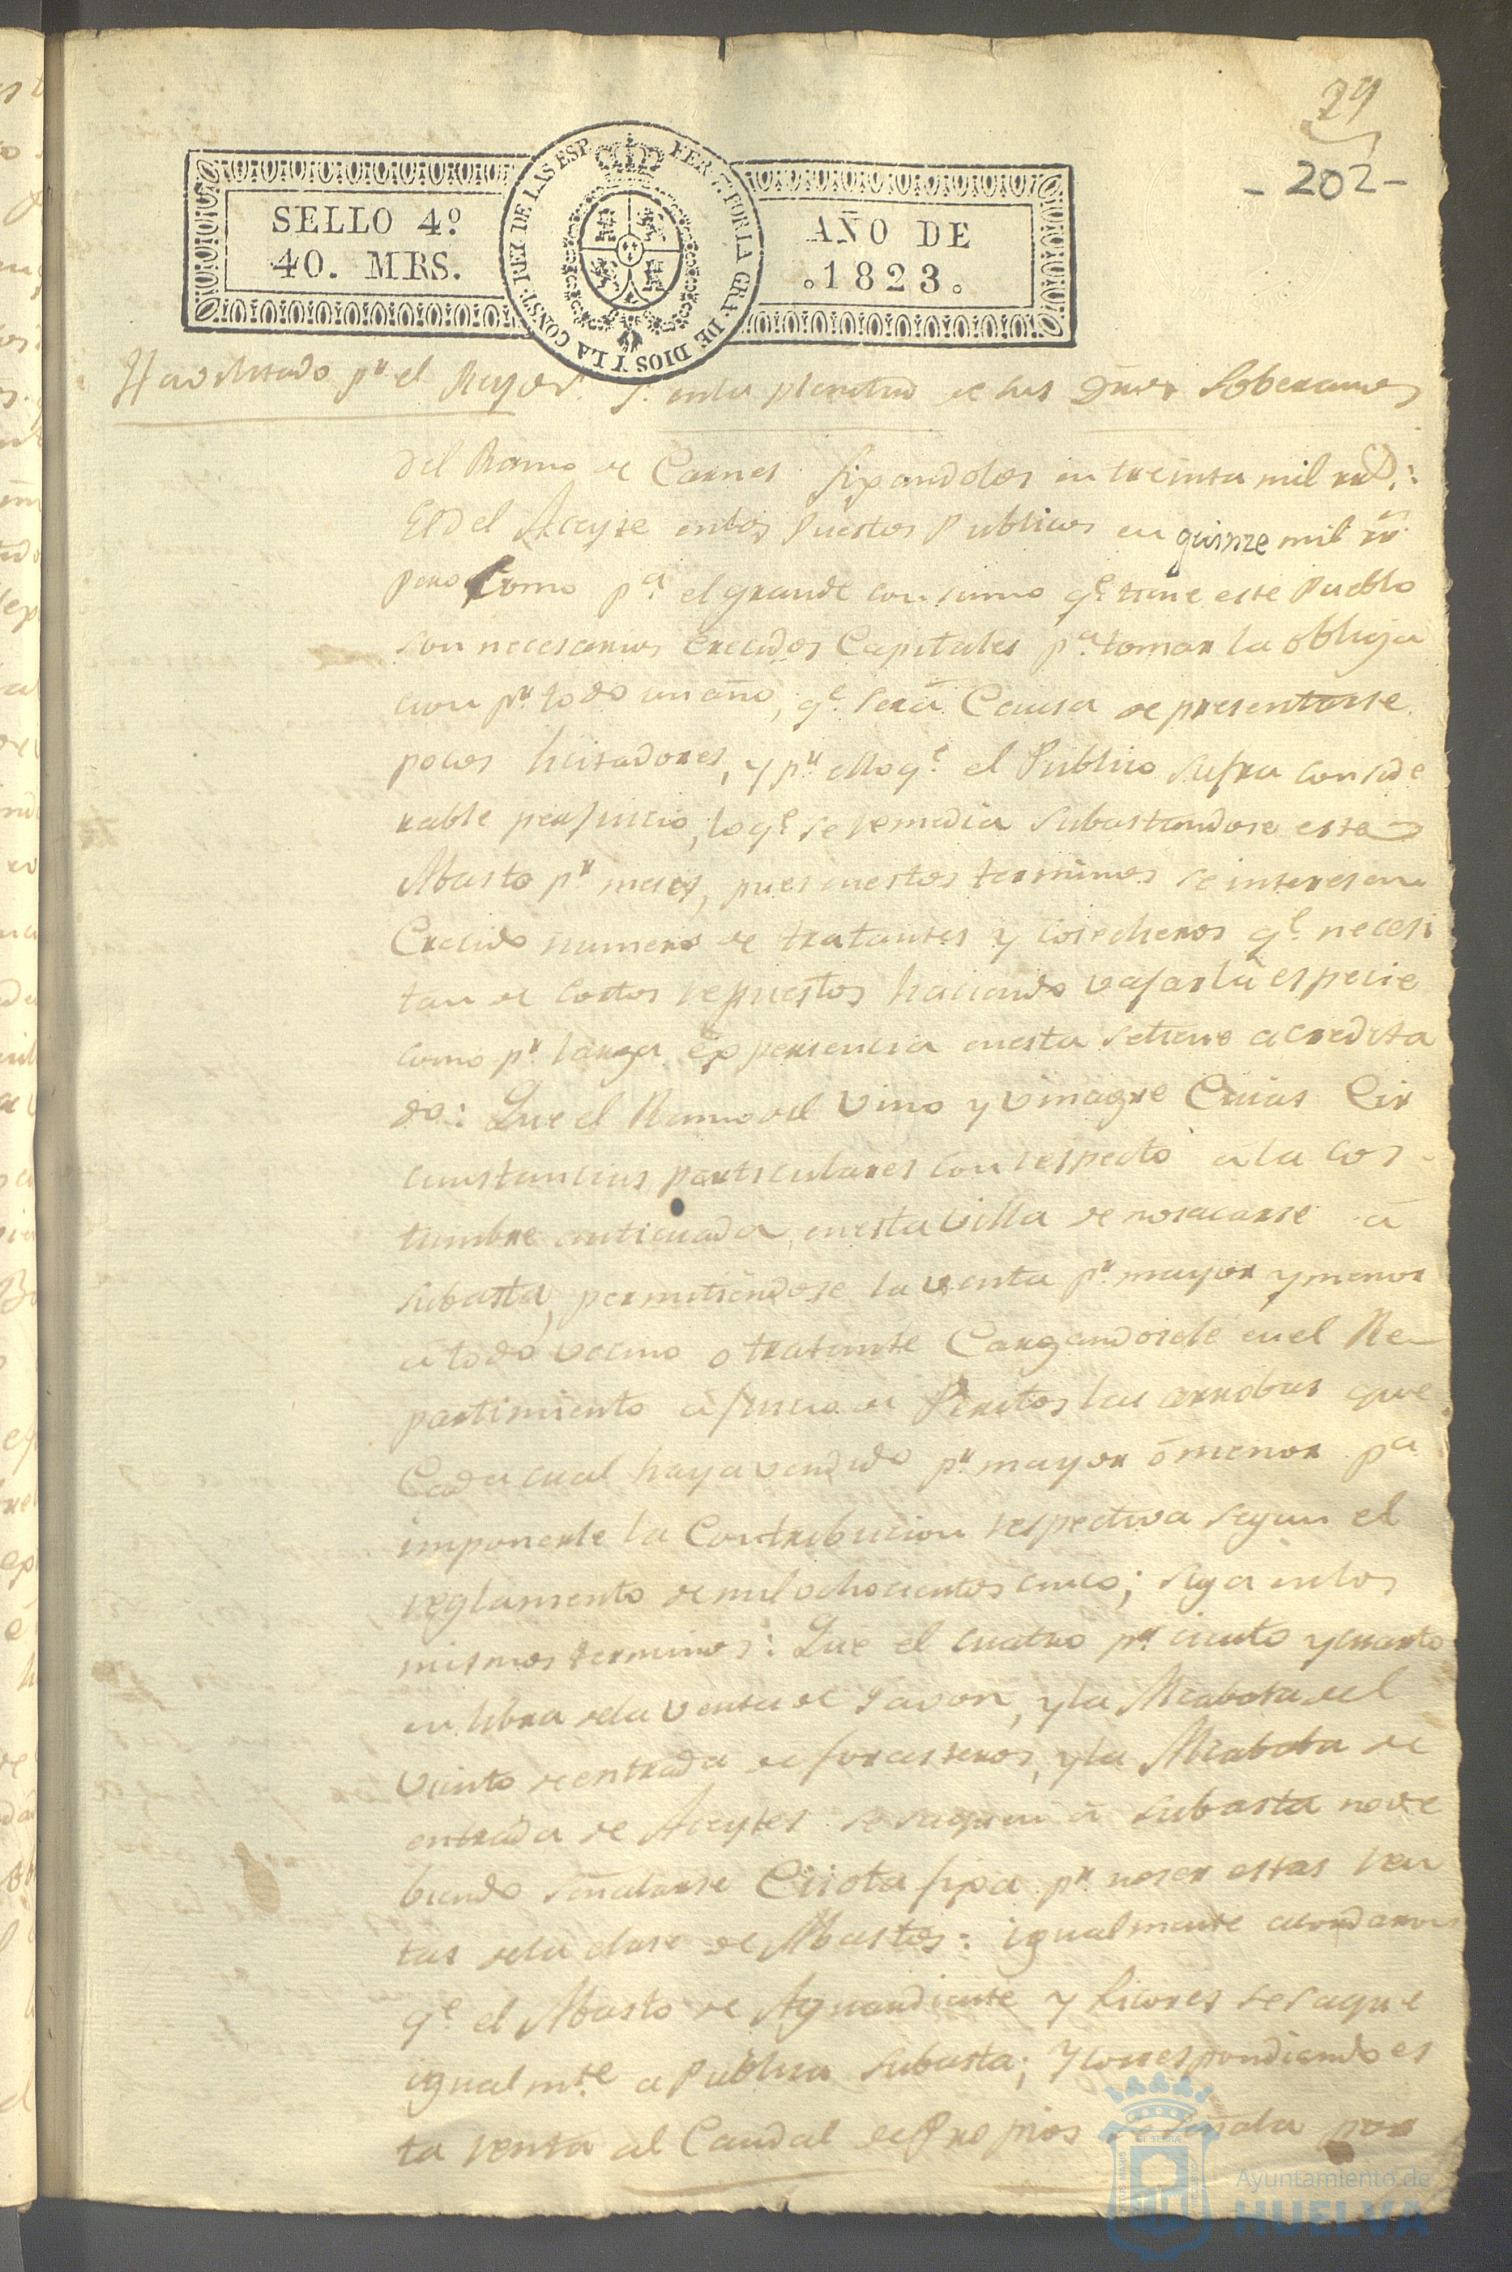 29
- 202 -
SELLO 4º
40. MRS.
FER. 7. POR LA GRA. DE DIOS Y LA CONST. REI DE LAS ESP.
AÑO DE
1823.
Havilitado pr el Rey
en la plenitud de sus Dros Soberanos
del Ramo de Carnes fixandolos en treinta mil rrs.:
El del Aceyte en los Puestos Publicos en quinze mil rrs
pero como pa el grande consumo qe tiene este Pueblo
son necesarios crecidos Capitales pa tomar la obliga
cion pr todo un año, qe será Causa de presentarse
pocos licitadores, y pr ello qe el Publico sufra conside
rable perjuicio, lo qe se remedia subastandose este
Abasto pr meses, pues en estos terminos se interesan
Crecido numero de tratantes y cosecheros qe necesi
tan de cortos repuestos haciendo vajar la especie
como pr larga experiencia en esta se tiene acredita
do: Que el Ramo del Vino y Vinagre Cuias Cir
cunstancias particulares con respecto á la cos-
tumbre anticuada en esta Villa de no sacarse á
subasta, permitiendose la venta pr mayor y menor
a todo vecino o tratante Cargandosele en el Re-
partimiento á juicio de Peritos las arrobas que
Cada cual haya vendido pr mayor ó menor pa
imponerle la Contribucion respectiva segun el
reglamento de mil ochocientos cinco; siga en los
mismos terminos: Que el cuatro pr ciento y cuarto
en libra de la Venta de Javon, y la Alcabala del
Viento de entrada de forasteros, y la Alcabala de
entrada de Aceytes se saquen á subasta no de
biendo señalarse Cuota fixa pr no ser estas ren
tas de la clase de Abastos: igualmente acordaron
qe el Abasto de Aguardiente y Licores se saque
igualmte a Publica Subasta; y correspondiendo es
ta renta al Caudal de Propios se señala por
Ayuntamiento de
HUELVA